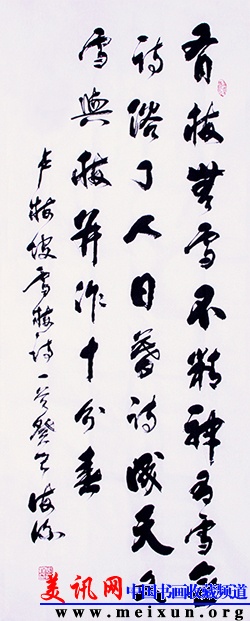 有梅無雪不精神有雪無
詩俗了人日暮詩成天又
雪與梅并作十分春
卢梅坡雪梅诗一首癸巳
美讯网 中国书画收藏频道
www.meixun.org